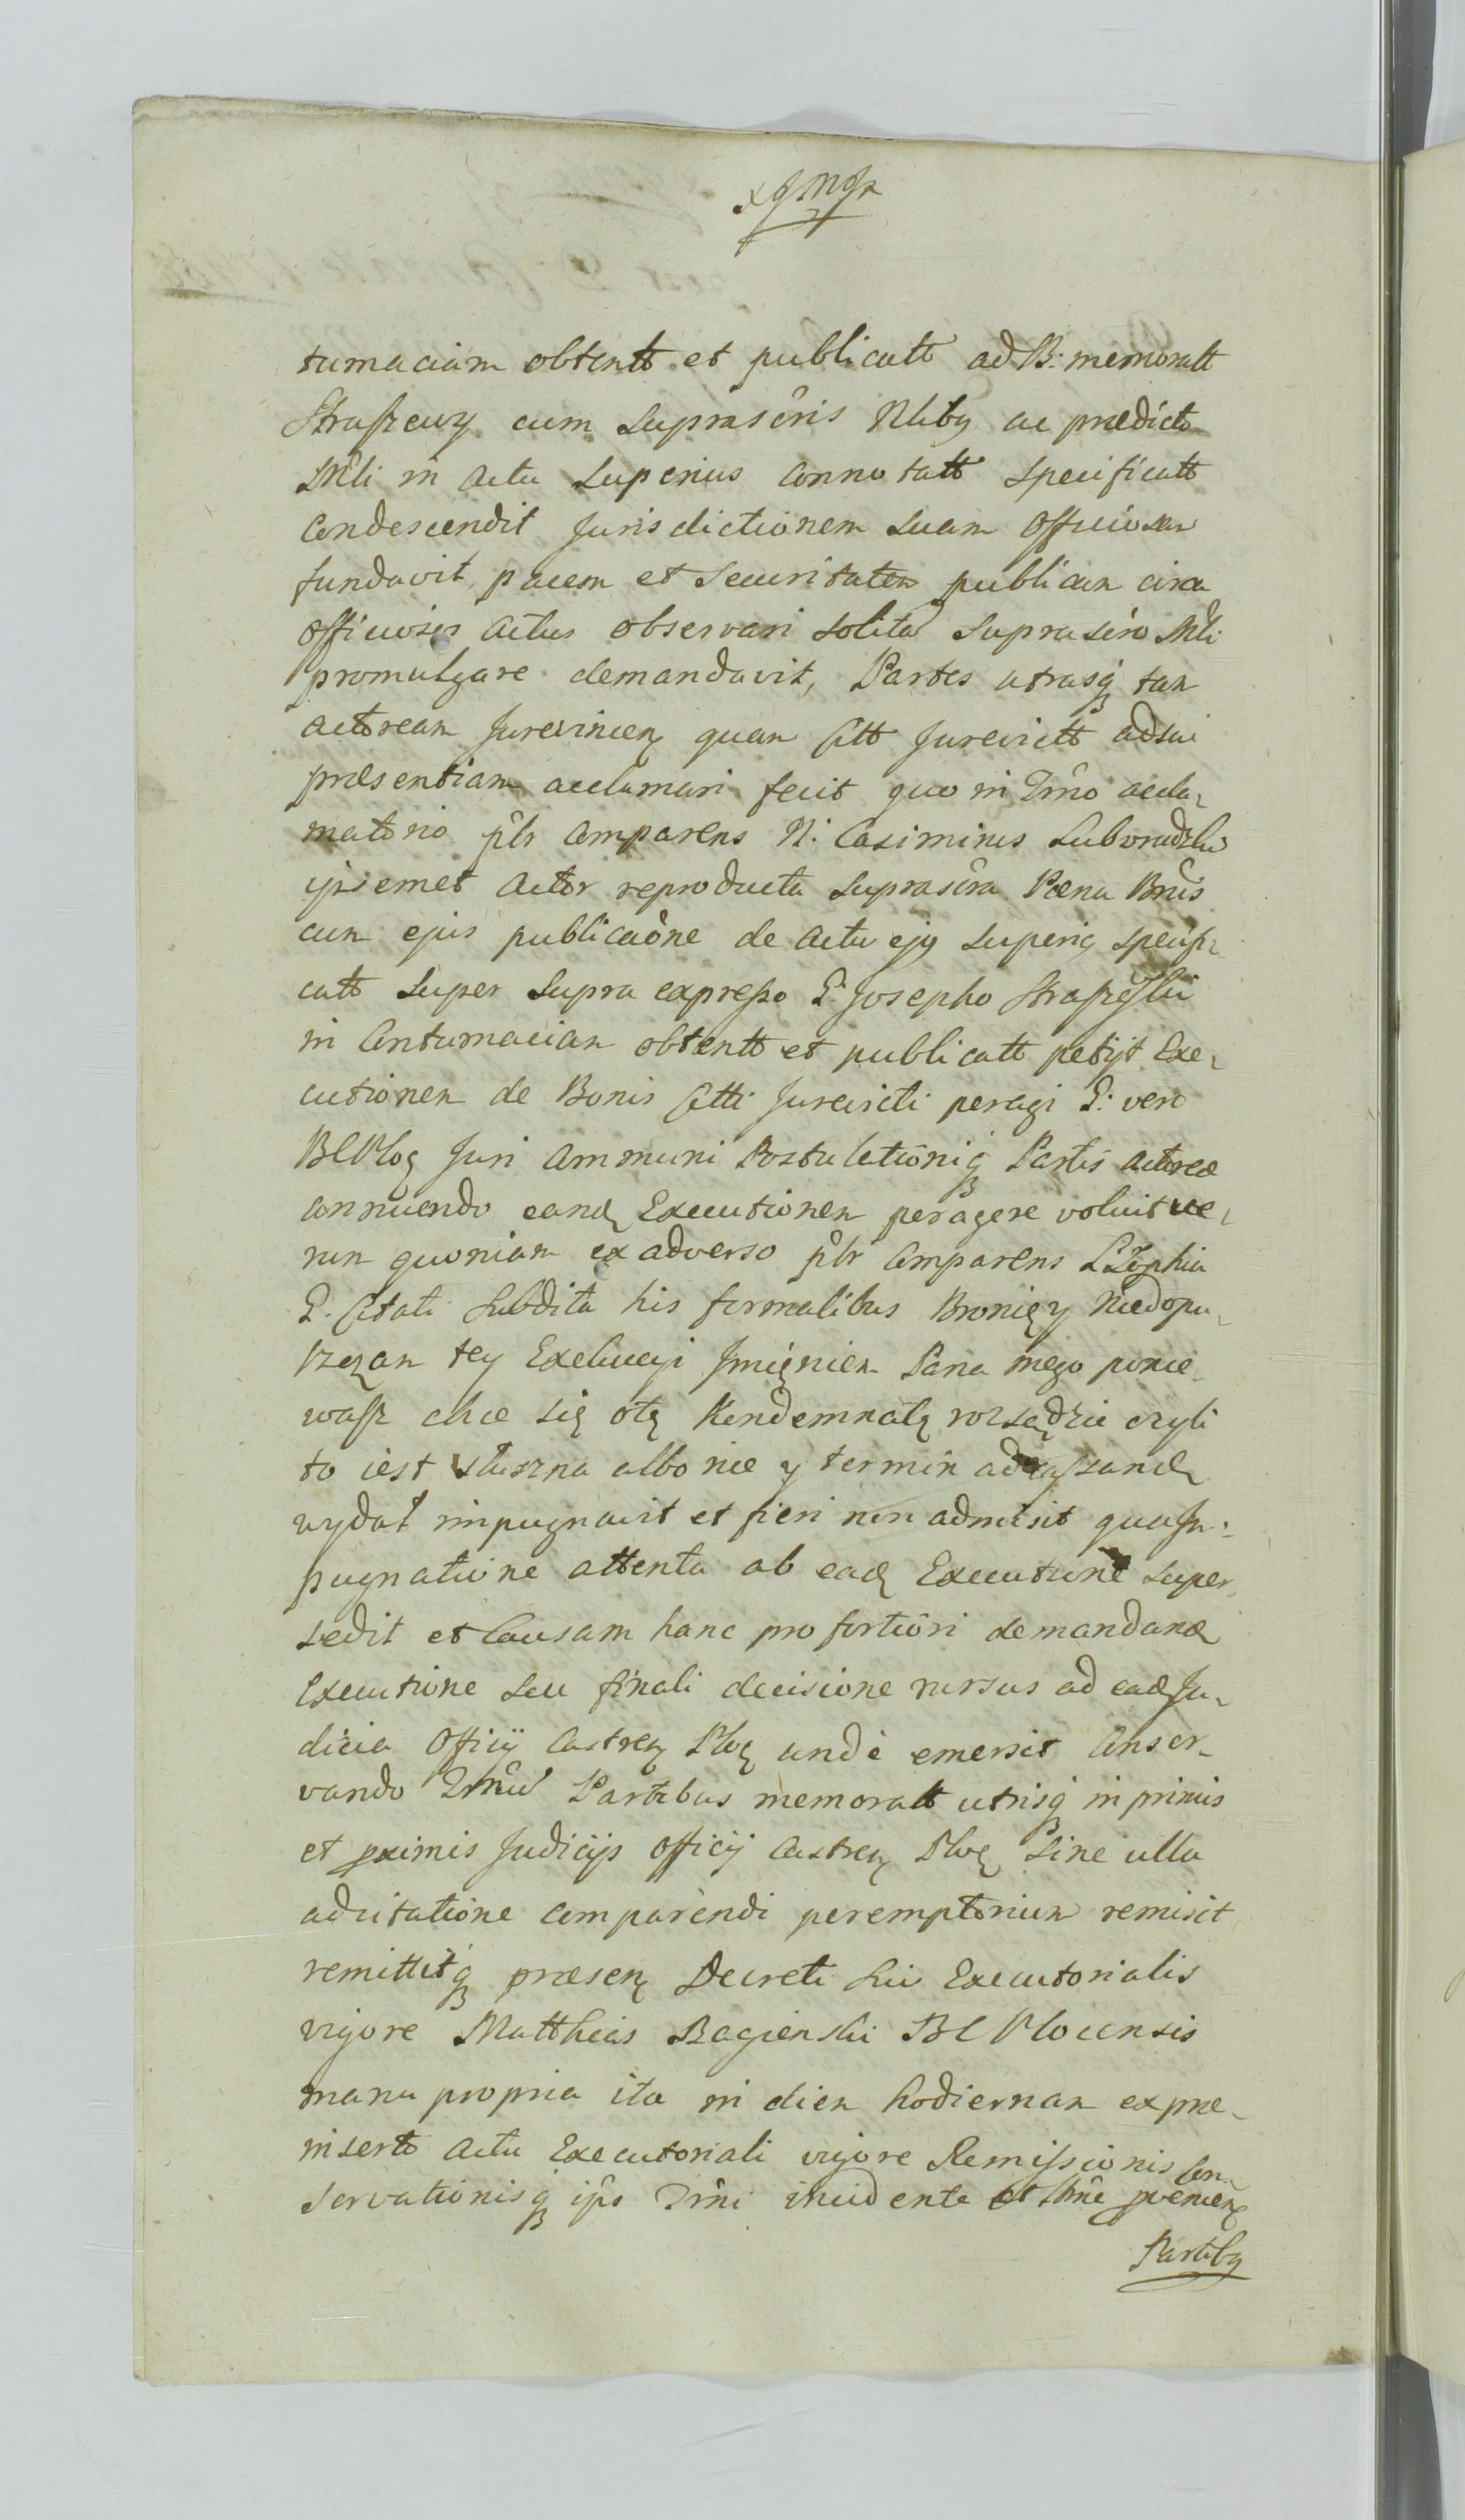 tumaciam obtentt et publicatt ad B: memoratt
Straszewy cum suprascris Nlibg ac prædicto
Mli in actu superius connotatt specificatt
Condescendit Jurisdictionem suam Officiosam
fundavit pacem et securitatem publicam circa
officiosos actus observari solitã suprascro Mli
promulgare demandavit, Partes utrasq tam
actoream Jurevincen quam Citt Jurevictt ad sui
præsentiam acclamari fecit quo in Trno accla-
matorio plr Comparens N: Casimirus Suboradzki
ipsemet Actor reproducta suprascra Pæna Bnis
cum ejus publicaône de actu ejg superig specifi-
catt super supra expresso G: Josepho Straszeski
in Contumaciam obtentt et publicatt petijt Exe-
cutionem de Bonis Citti Jurevicti peragi G: vero
BCPloc Juri Communi Postulationiq Partis actoreæ
annuendo eand Executionem peragere voluit ve-
rum quoniam ex adverso plr Comparens L Zophia
G. Citati Subdita his formalibus Bronię y niedopu-
szczam tey Exekucyi Jmięniem Pana mego ponie-
wasz chce się o tę Kondemnatę rozsądzic czyli
to iest słuszna albo nie y termin ad cassand
wydał impugnavit et fieri non admisit qua Jm-
pugnatione attenta ab ead Executione super-
sedit et Causam hanc pro fortiori demandand
Executione seu finali decisione rursus ad ead Ju-
dicia Officij Castren Ploc unde emersit Conser-
vando Trnũ Partibus memoratt utrisq in primis
et pximis Judicijs Officij Castren Ploc sine ulla
adcitatione comparendi peremptorium remisit
remittitq præsen Decreti sui Executorialis
vigore Matthias Bagienski BC Plocensis
manu propria ita in diem hodiernam ex præ-
inserto actu Executoriali vigore Remissionis Con-
servationisq ips Trni incidente et pvenien
Partibg